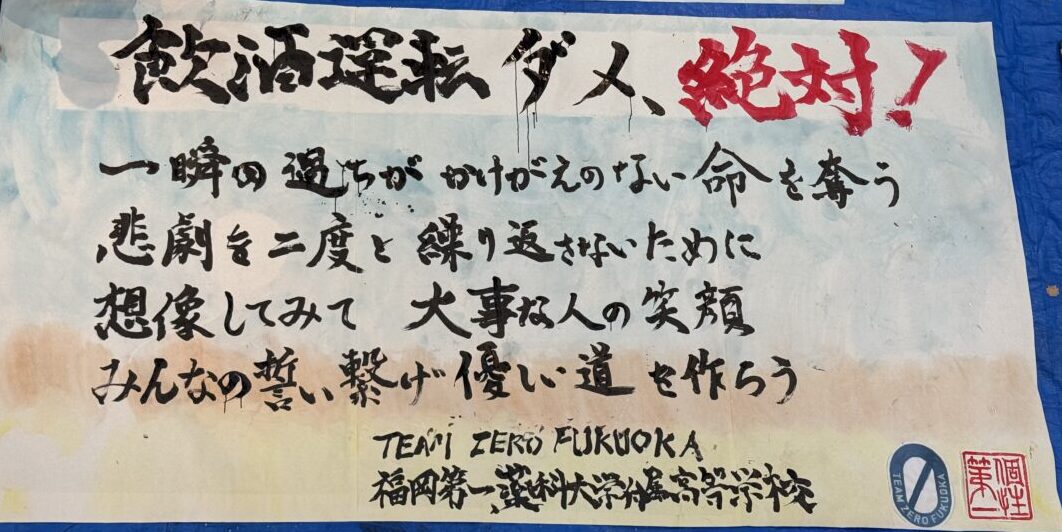 飲酒運転ダメ、絶対！
一瞬の過ちがかけがえのない命を奪う
悲劇を二度と繰り返さないために
想像してみて　大事な人の笑顔
みんなの誓い繋げ優しい道を作ろう
TEAM ZERO FUKUOKA
福岡第一薬科大学付属高等学校
TEAM ZERO FUKUOKA
個性
第一